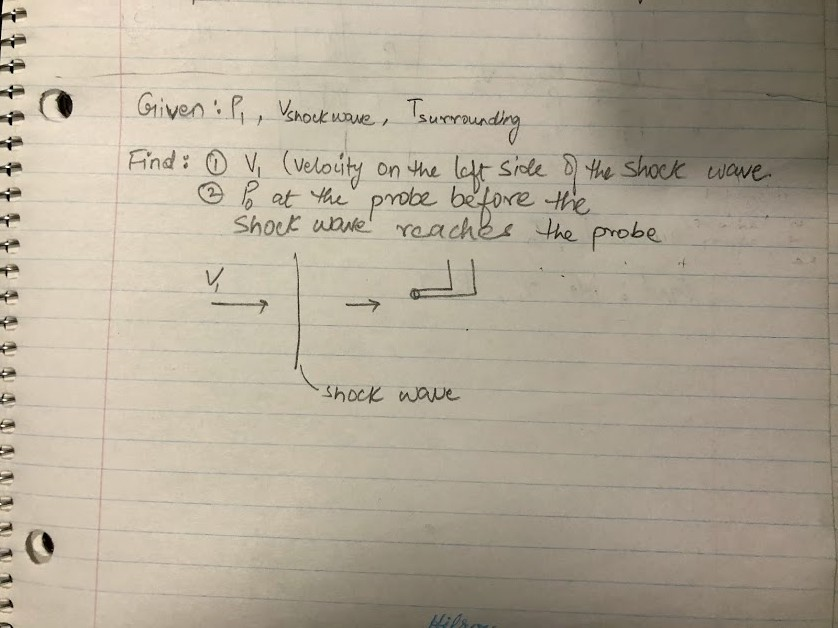 Given: P₁, Vshockwave, Tsurrounding
Find: ① V₁ (velocity on the left side of the shock wave.
② P₀ at the probe before the
shock wave reaches the probe
V₁
shock wave